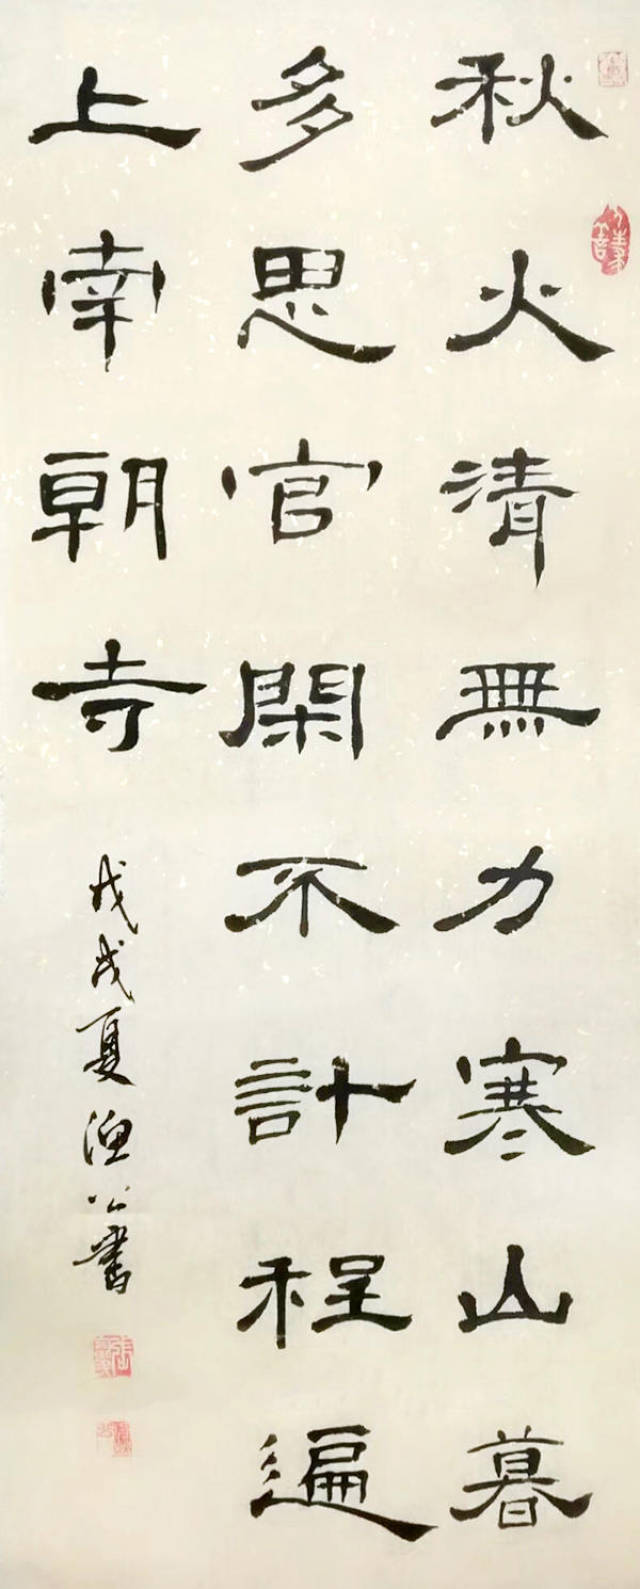 秋火清無力寒山暮
多思官閑不計程遍
上南朝寺
戊戌夏漁公書